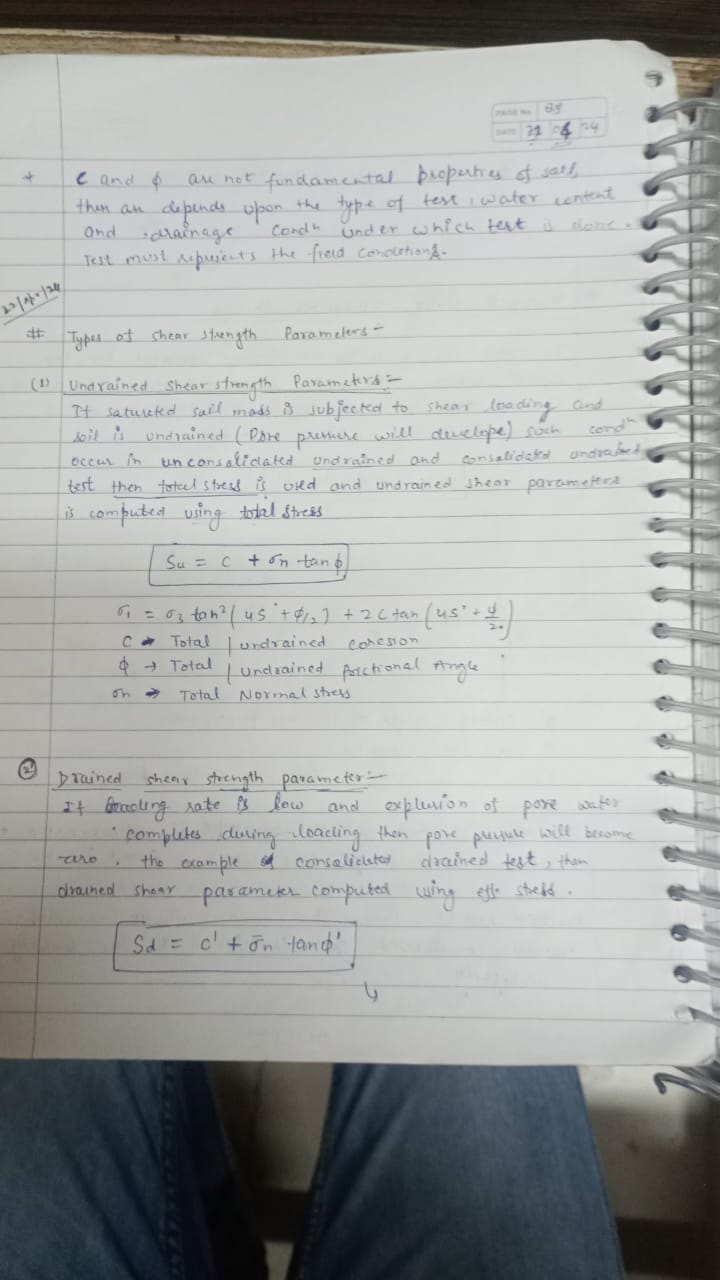 PAGE No. 89
DATE 21 04 24
+ C and ϕ are not fundamental properties of soil,
then an depends upon the type of test, water content
and drainage condn under which test is done.
Test must represents the field conditions.
22/04/24
# Types of shear strength Parameters :-
(1) Undrained shear strength Parameters :-
If saturated soil mass is subjected to shear loading and
soil is undrained (Pore pressure will develope) such condn
occur in unconsolidated undrained and consolidated undrained
test then total stress is used and undrained shear parameters
is computed using total stress
Su = C + σn tan ϕ
σ1 = σ3 tan² (45° + ϕ/2) + 2C tan (45° + ϕ/2)
C → Total / undrained cohesion
ϕ → Total / undrained frictional Angle
σn → Total Normal stress
(2) Drained shear strength parameter :-
If loading rate is low and explusion of pore water
completes during loading then pore pressure will become
zero, the example of consolidated drained test, then
drained shear parameter computed using eff. stress.
Sd = c' + σ̄n tanϕ'
↳